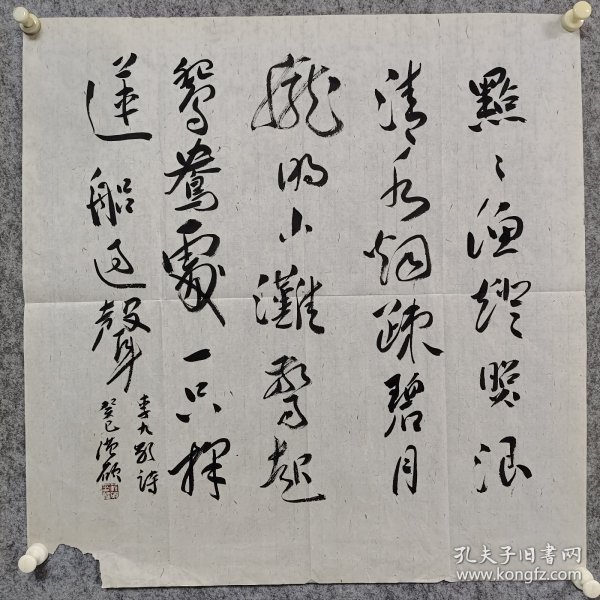 點〻漁燈照浪
清水烟疎碧月
朧明小灘驚起
鴛鴦處一只採
蓮船過聲
李九齡詩
癸巳
孔夫子旧书网
www.kongfz.com